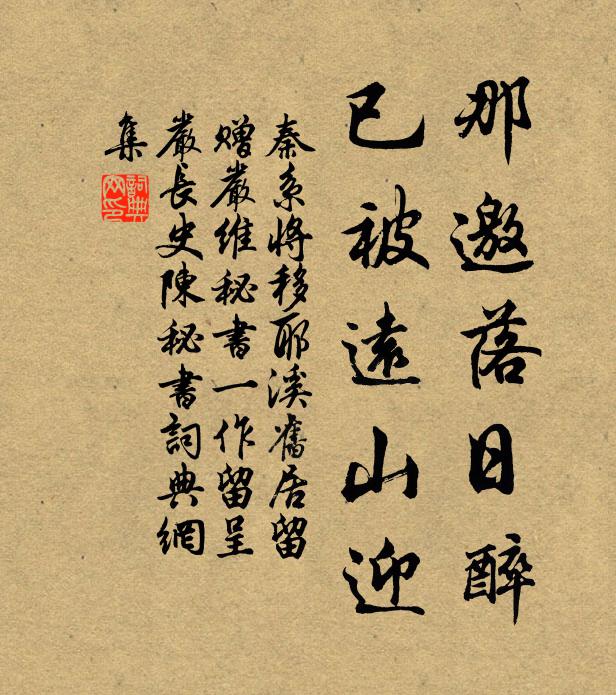 那邀落日醉
已被遠山迎
秦系將移耶溪舊居留
贈嚴維秘書一作留呈
嚴長史陳秘書詞典網
集
詞典網印